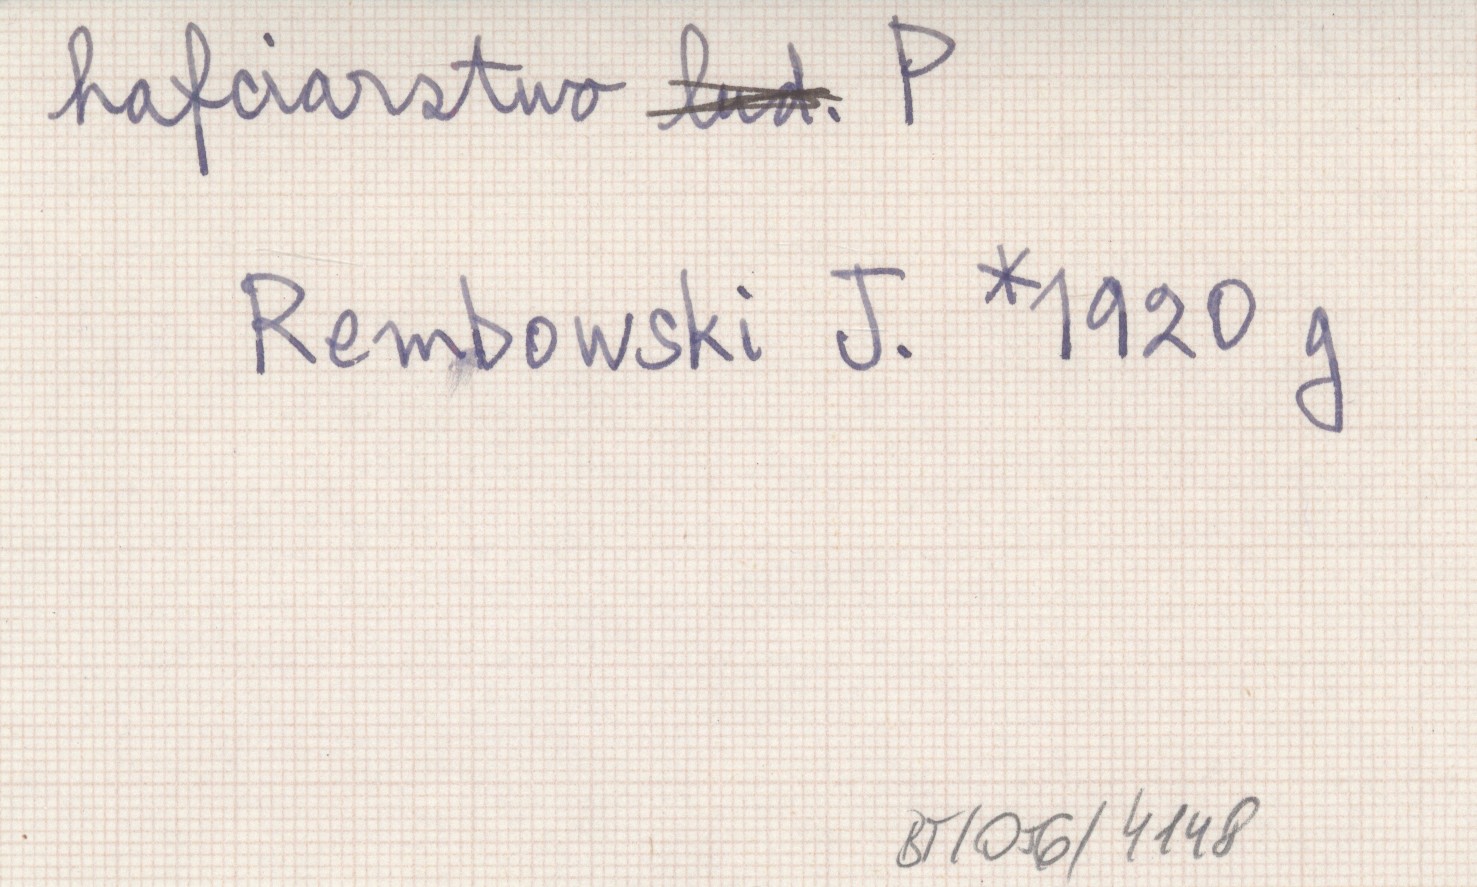 hafciarstwo lud. P
Rembowski J. *1920 g
BT/OJG/4148